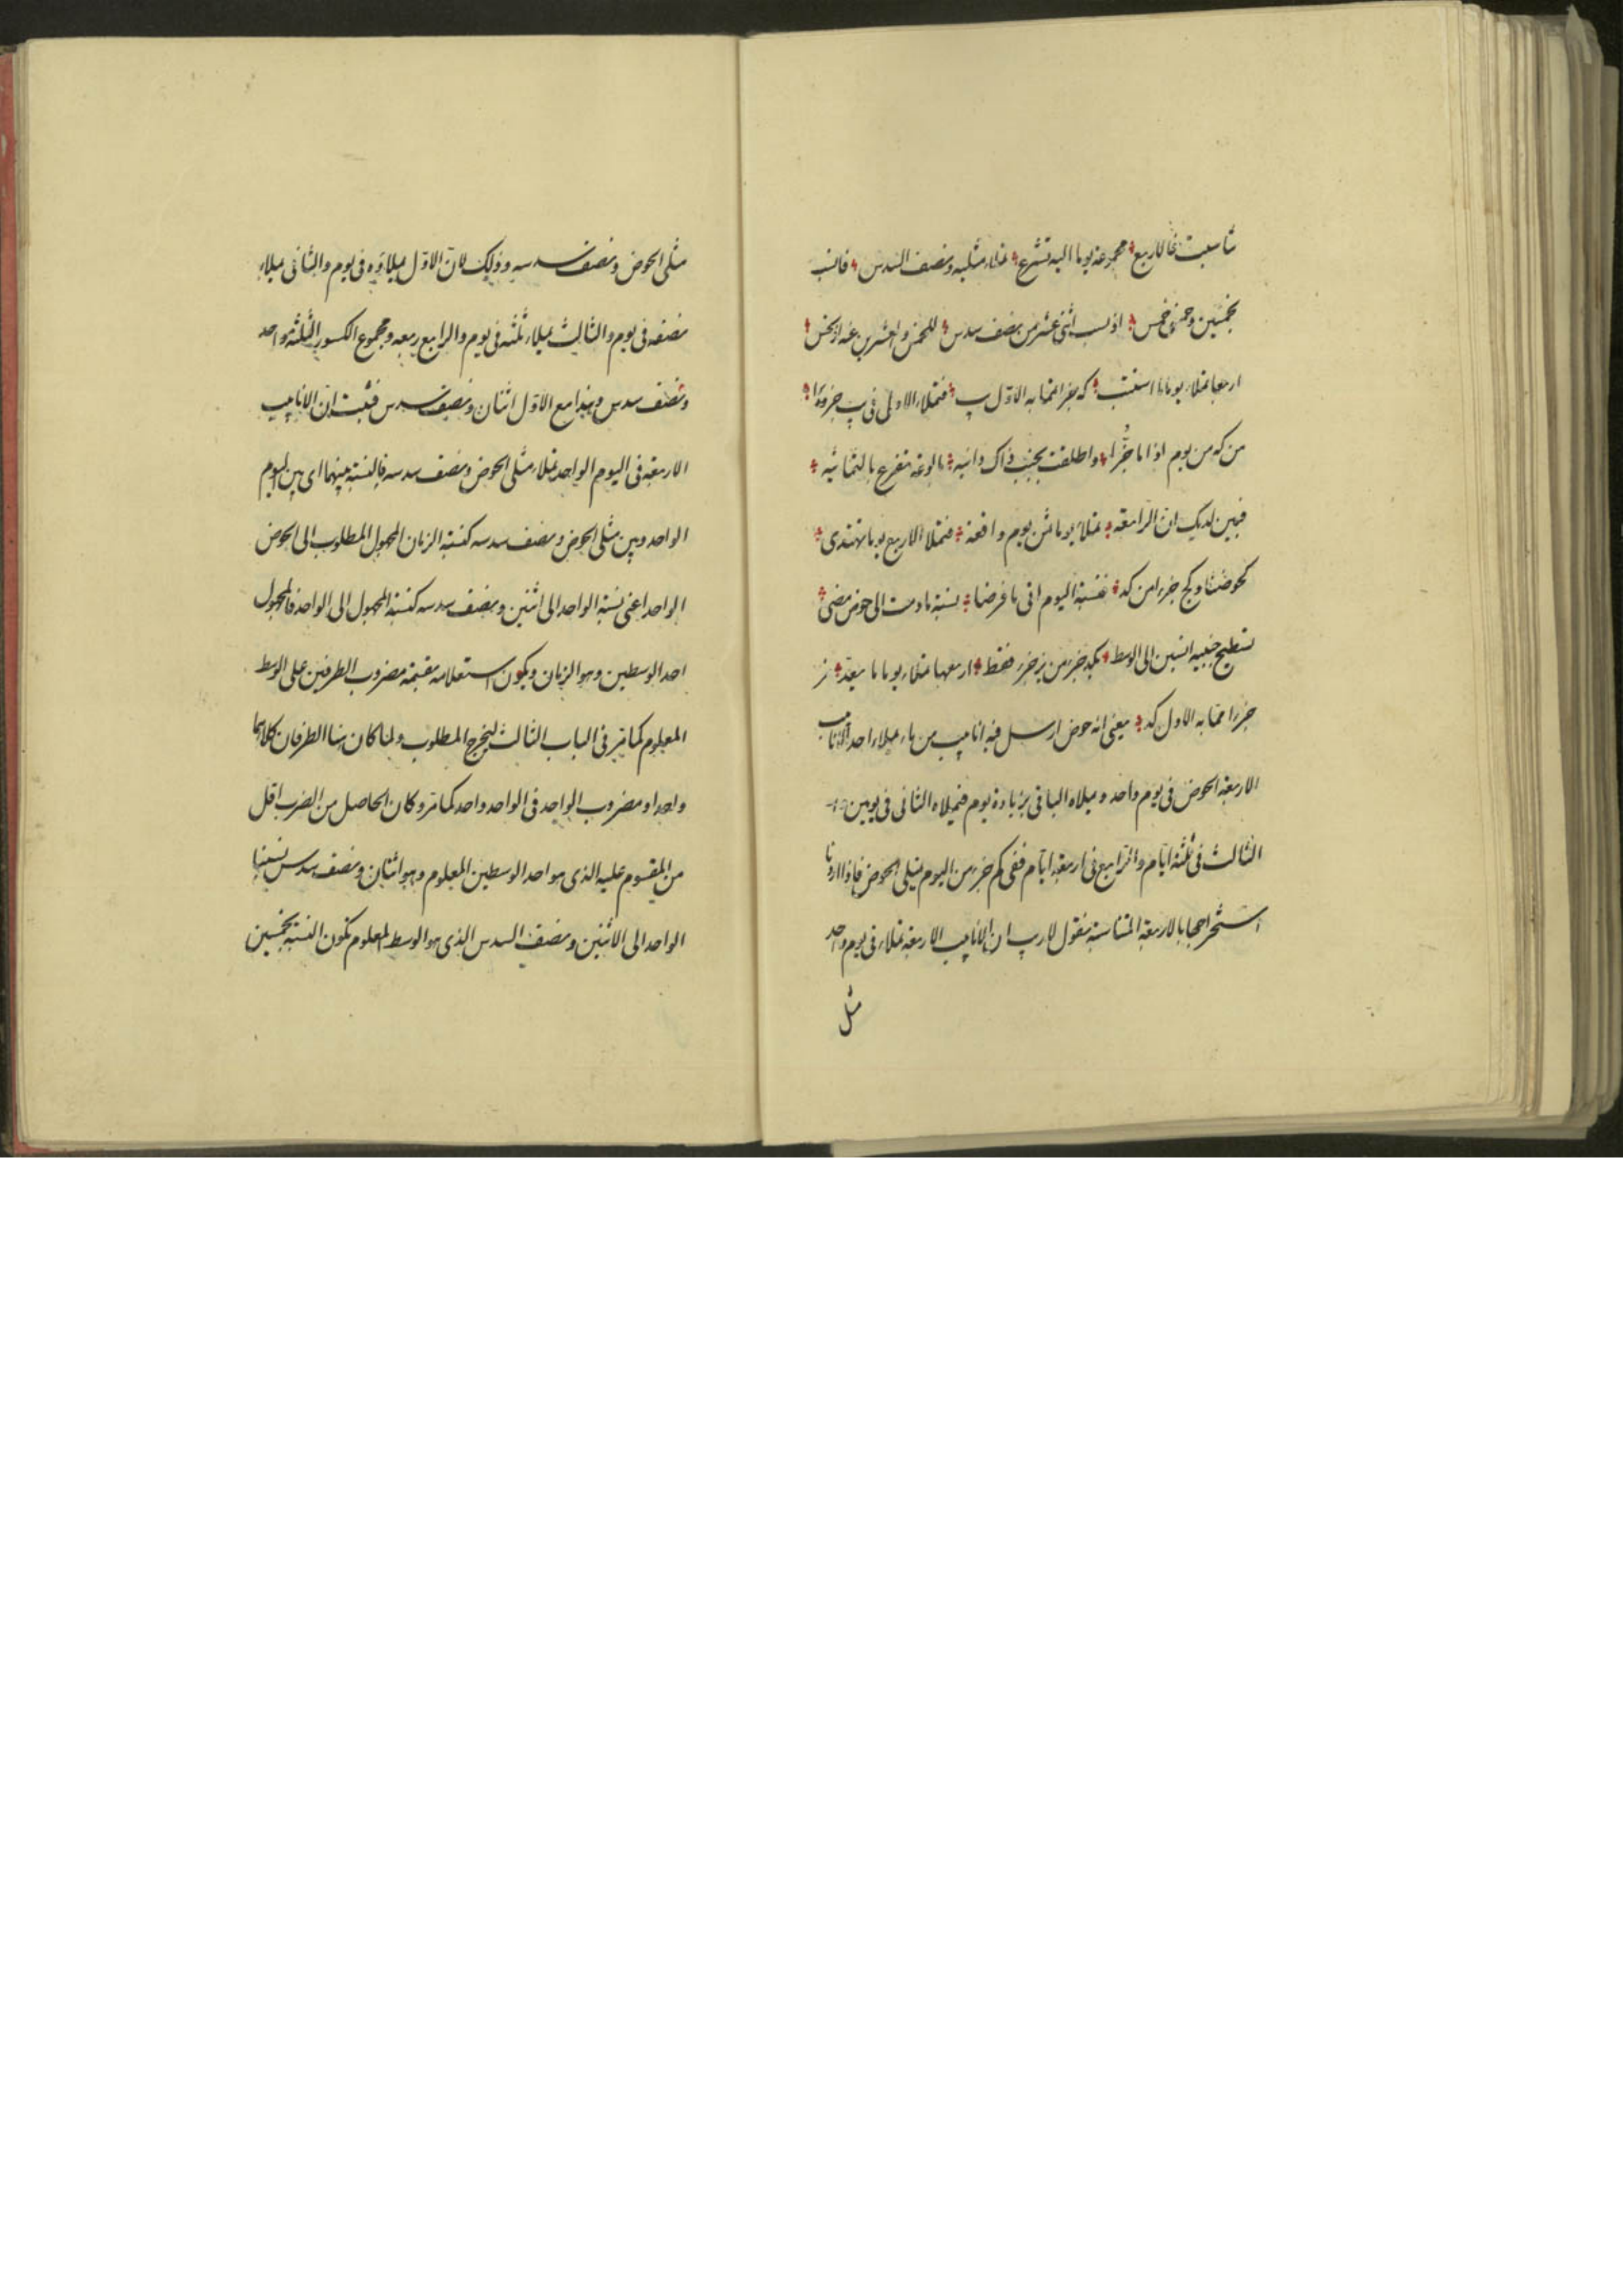 تا سعت فالاربع مجموعة يوما اليه تشرع تملاء مثليه ونصف السدس فانسب
بخمسين وخمسى خمس اذ نسب اثنى عشر من نصف سدس للخمس والعشرين عند
اربعها تملاء يوما ما اسفت كه جزءا مما به الاول ب فتملاء الاولى فى ب جزءا
من كه من يوم اذا ما جزا واطلقت بجنب ذاك وانيه بالوعة تفرغ بالثمانيه
فبين لديك ان الرابعه تملاء يوما ثمن يوم واقعه فتملا الاربع يوما تهتدى
كحوضنا وكج جزءا من كد فنسبة اليوم الى ما فرضا نسبة ما دمت الى حوض مضى
تسطيح جنبيه انسبن الى الوسط بكد جزء من جزء فقط اربعها تملاء يوما ما بعد
جزءا مما به الاول كد يعنى انه حوض ارسل فيه انابيب من ماء يملاء احد الانابيب
الاربعة الحوض فى يوم واحد ويملاه الباقى بزيادة يوم فيملاه الثانى فى يومين و
الثالث فى ثلثة ايام والرابع فى اربعة ايام ففى كم جزء من اليوم يمتلى الحوض فاذا اردنا
استخراجها بالاربعة المتناسبة نقول لاريب ان الانابيب الاربعة تملاء فى يوم واحد
مثلى
مثلى الحوض ونصف سدسه وذلك لان الاول يملاؤه فى يوم والثانى يملاء
نصفه فى يوم والثالث يملاء ثلثه فى يوم والرابع ربعه ومجموع الكسور الثلثة واحد
ونصف سدس وهذا مع الاول اثنان ونصف سدس فثبت ان الانابيب
الاربعة فى اليوم الواحد تملاء مثلى الحوض ونصف سدسه فالنسبة بينهما اى بين اليوم
الواحد وبين مثلى الحوض ونصف سدسه كنسبة الزمان المجهول المطلوب الى الحوض
الواحد اعنى نسبة الواحد الى اثنين ونصف سدسه كنسبة المجهول الى الواحد فالمجهول
احد الوسطين وهو الزمان ويكون استعلامه بقسمة مضروب الطرفين على الوسط
المعلوم كما مر فى الباب الثالث ليخرج المطلوب ولما كان هنا الطرفان كلاهما
واحدا ومضروب الواحد فى الواحد واحد كما مر وكان الحاصل من الضرب اقل
من المقسوم عليه الذى هو احد الوسطين المعلوم وهو اثنان ونصف سدس نسبنا
الواحد الى الاثنين ونصف السدس الذى هو الوسط المعلوم تكون النسبة بخمسين